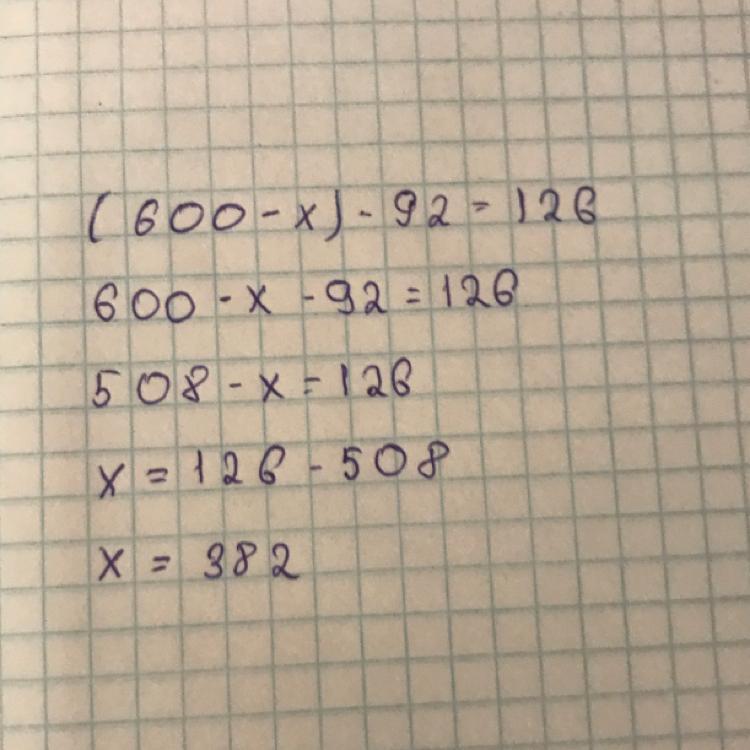 (600 - x) - 92 = 126
600 - x - 92 = 126
508 - x = 126
x = 126 - 508
x = 382